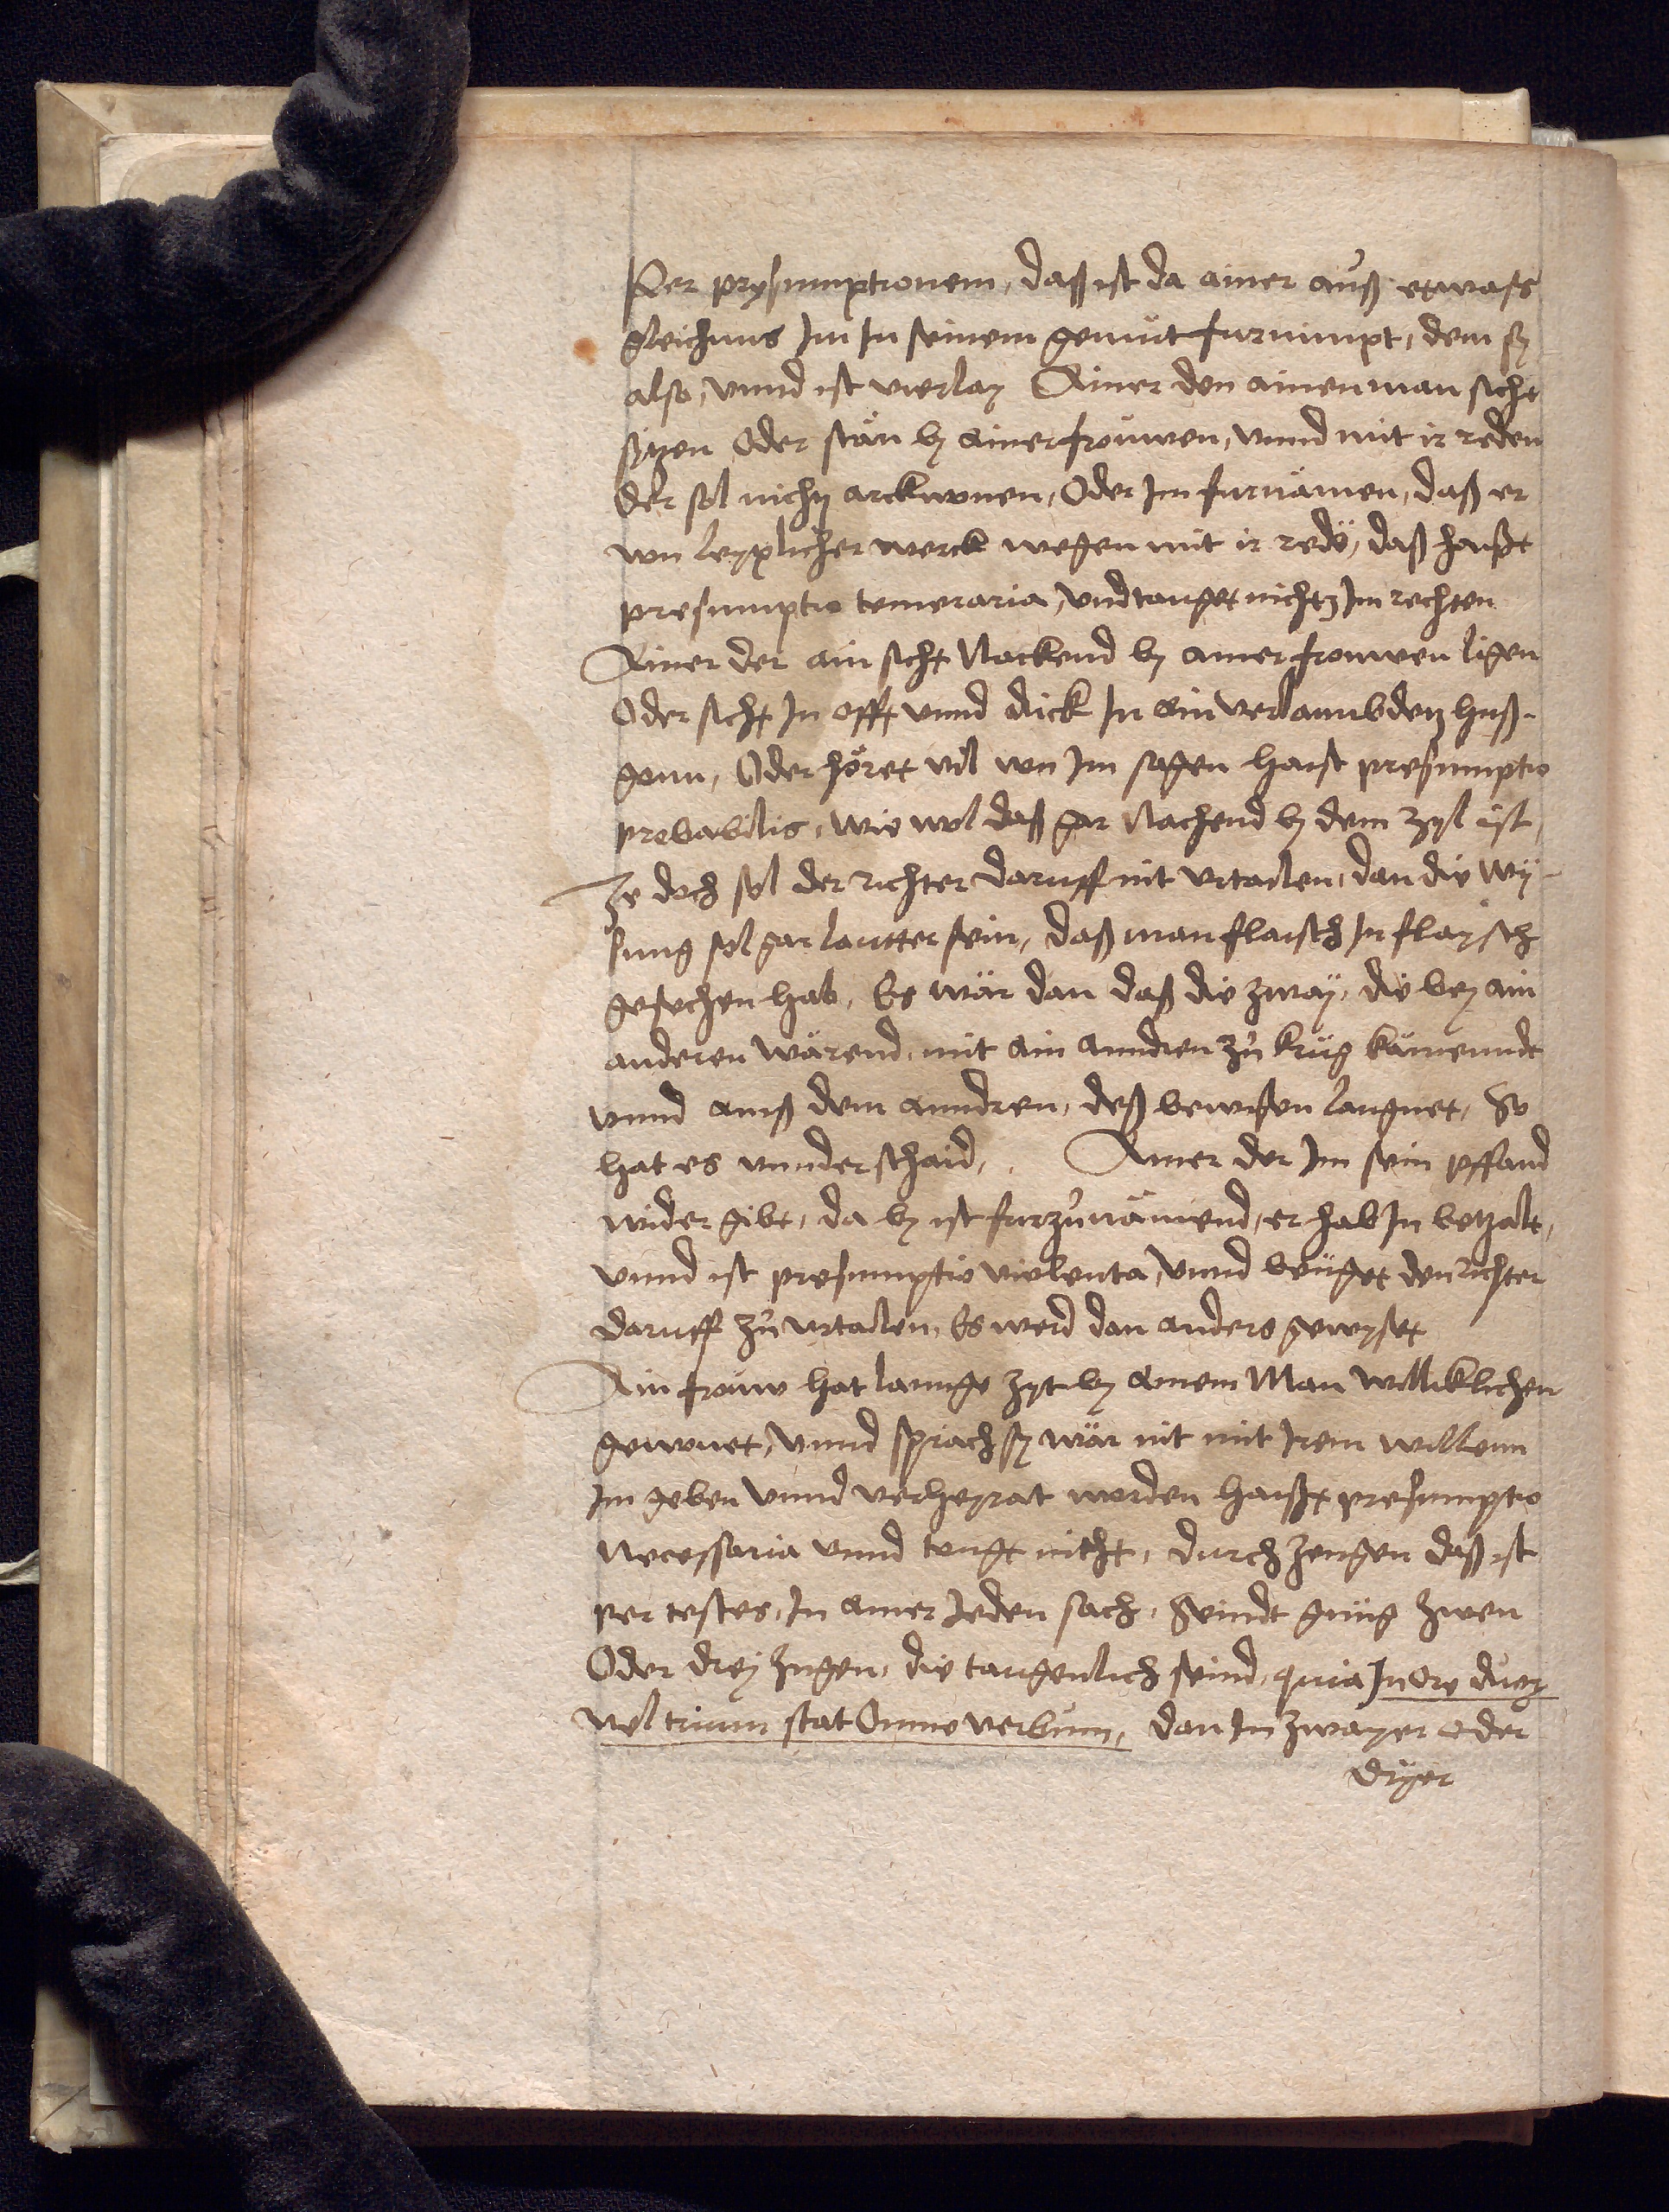 Per presumptionem, daß ist da ainer auß etwass
gleichnus Im In seinem gemüt furnimpt, dem sy
also, vnnd ist vierlay Ainer den ainen man sicht
sitzen Oder stän by ainer froüwen, vnnd mit ir reden
der sol nichtz arckwonen, Oder Im furnämen, daß er
von leyplicher werck wegen mit ir redë, daß haißt
presumptio temeraria, vnd tauget nichtz Im rechten
Ainer der ain sicht Nackend by ainer frouwen ligen
Oder sicht In offt vnnd dick In ain verlaumbdetz huß
gonn, Oder höret vil von Im sagen haist presumptio
probabilis, wie wol daß gar Nachend by dem zyl ist,
Je doch sol der richter daruff nit vrtailen, dan die wÿ-
sung sol gar lautter sein, daß man flaisch In flaysch
gesechen hab, Es wär dan daß die zwaÿ, die bey ain
anderen wärend, mit ain anndren zu krüg kämenndt
vnnd ainß dem anndren, deß bewisen laugnet, So
hat es vnnderschaid, Ainer der Im sein pffand
wider gibt, da by ist furzunämend, er hab In betzalt,
vnnd ist presumptio violenta, vnnd beüget den richter
daruff zu vrtailen, Es werd dan anders gewyset
Ain frouw hat lannge zyt by ainem Man williklichen
gewonet, vnnd sprach sy wär nit mit Irem willenn
Im geben vnnd verheyrat worden haißt presumptio
Necessaria vnnd tougt nicht, durch zeugen daß ist
per testes, In ainer Jeden sach, Seindt gnüg zwen
Oder drey zugen, die taugenlich seind, quia In ore duorum
vel trium stat Omne verbum, dan In zwayer oder
dryer